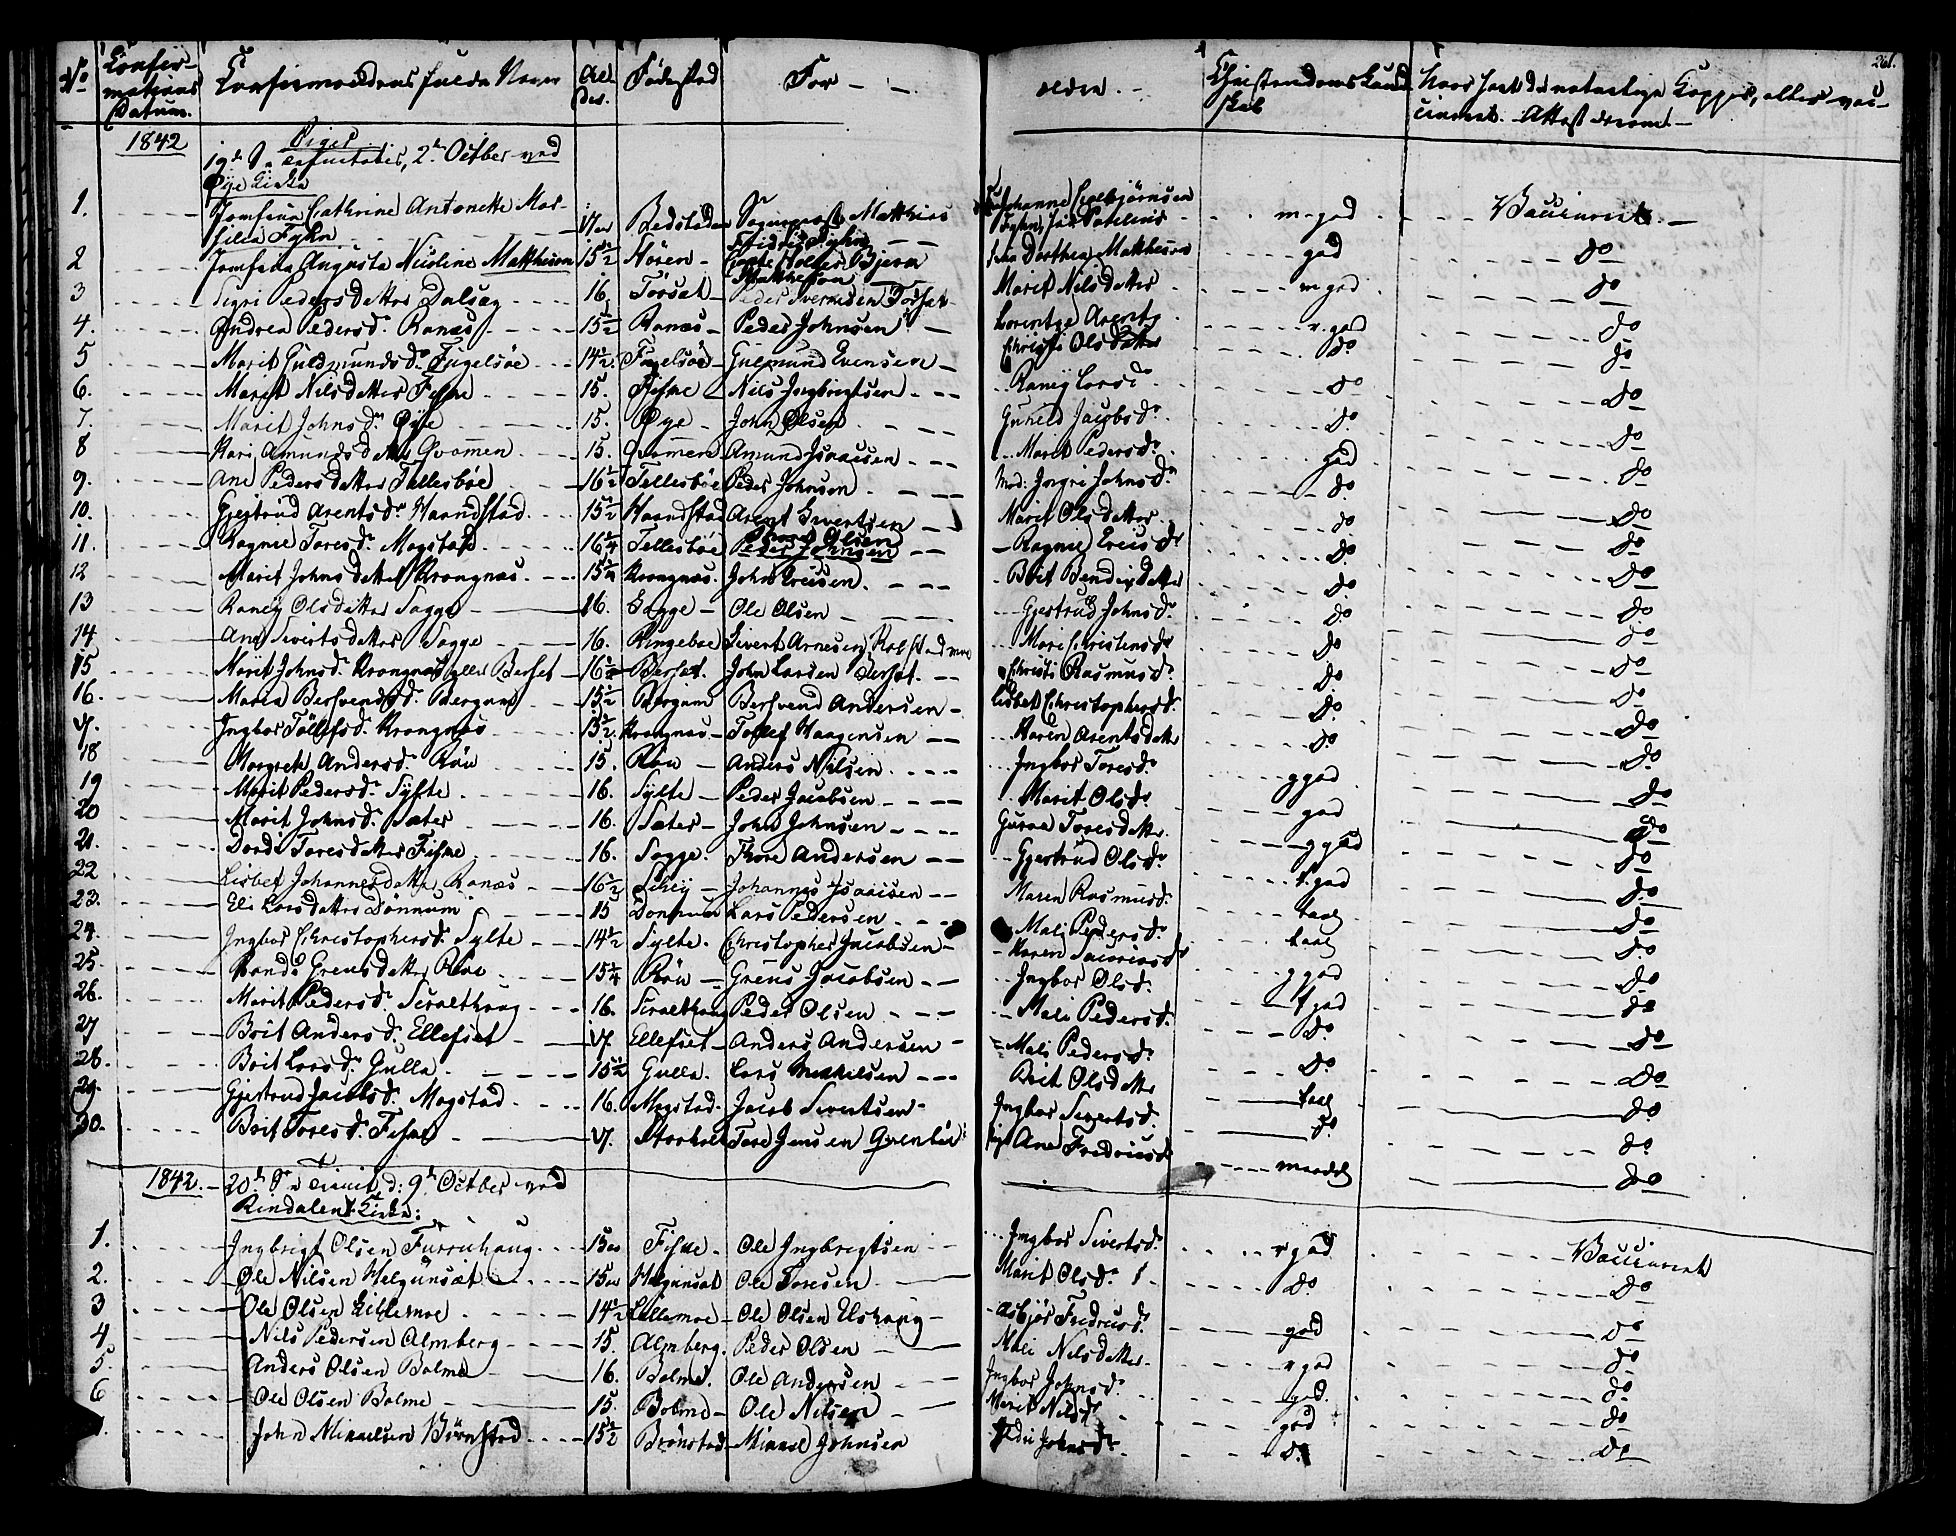 261.
No Confirmations Datum. Confirmandens fulde Navn Alder. Fødested For - - ældre. - Christendoms Kundskab Hvor havt de naturlige Kopper, eller vaccineret. Attest derom. -
1842 Piger
19de S. Trinitatis, 2den October ved
Øye Kirke
1. Jomfrue Cathrine Antonette Mathilda Tyhn 17 Bedstaden Sogneprest Matthias m-god Vaccineret
2 Jomfrue Augusta Nicoline Matthesen 15½ Støren - god do
3 Sigri Pedersdatter Dalsæg 16 Torset - Peder Iversen Torset Marit Nilsdatter m god do
4. Andrea Pedersd. Ranæs 15½ Ranæs - Peder Johnsen Lorentze Arents r. god do
5 Marit Guldmundsd. Fugelsøe 14½ Fugelsøe - Gulmund Evensen Christi Olsdatter do do
6. Marit Nilsdatter Fiske 15. Fiske Nils Ingbrigtsen Raney Larsd. do do
7. Marit Johnsd. Øye 15. Øye - John Olsen Gunild Jacobsd. do do
8 Kari Amundsdatter Qvammen 15. Qvammen Amund Isaacsen Marit Pedersd. god do
9. Ane Pedersdatter Tellesbøe 16½ Tellesbøe Peder Johnsen Mod: Ingri Johnsd. do do
10. Gjertrud Arentsd. Haandstad 15½ Haandstad Arent Sivertsen Marit Olsdatter do do
11. Ragnie Toresd. Mogstad 16¼ Tellesbøe Peder Johnsen Ragnie Ericsd. do do
12 Marit Johnsdatter Krongnæs 15¼ Krongnæs. John Ericsen Brit Bendixdatter do do
13 Raney Olsdatter Sagge 16. Sagge - Ole Olsen Gjertrud Johnsd. do do
14. Ane Sivertsdatter Sagge 16. Ringeboe Sivert Arnesen Rolstadmoe Mari Christensd. do do
15 Marit Johnsd. Krongnæs eller Berset 16½ Berset. John Larsen Berset. Christi Rasmusd. do do
16. Maria Bersvendsd. Bergum 15½ Bergum Bersvend Andersen Lisbet Christophersd. do do
17. Ingbor Tollefsd. Krongnæs 15½ Krongnæs - Tollef Haagensen Karen Arentsdatter do do
18 Margreth Andersd. Røu 15. Røu - Anders Nilsen Ingbor Toresd. g god do
19 Marit Pedersd. Sylte 16. Sylte - Peder Jacobsen Marit Olsd. god do
20 Marit Johnsd. Sæter 16. Sæter - John Johnsen Guroe Toresdatter g god do
21. Dordi Toresdatter Fiske 16. Sagge. Thore Andersen Gjertrud Olsd. t. god do
22 Lisbet Johannesdatter Ranæs 16½ Johannes Isaacsen Maren Rasmusd. taal do
23. Eli Larsdatter Dønnum 15 Donnum Lars Pedersen Mali Pedersd. taal do
24. Ingbor Christophersd. Sylte 14½ Sylte. Christopher Jacobsen Karen g god do
25. Randi Grensdatter Røe 15¼ Røu - Grens Jacobsen Ingbor Olsd. t god do
26. Marit Pedersd. 16. Peder Olsen Mali Pedersd. do do
27 Brit Andersd. Ellefset 17. Ellefset - Anders Andersen Mali Pedersd. do do
28. Brit Larsd. Gulla. 15½ Gulla. Lars Brit Olsdatter taal do
29. Gjertrud Jacobsd. Mogstad. 16. Mogstad. Jacob Sivertsen Ingbor Sivertsd. do do
30. Brit Toresd. Fiske 17. Tore Jensen Ane Fredricsd. maadel do
1842. - 20de S. Trinit, d: 9de October ved
Rindalens Kirke:
1. Ingbrigt Olsen Furruhaug 15 Fiske. Ole Ingbrigtsen Ingbor Sivertsd. r god Vaccineret
2. Ole Nilsen Helgunsæt 15 Helgunsæt Ole Toresen Marit Olsd. do do
3 Ole Olsen Lillemoe 14½ Lillemoe - Ole Olsen Elshaug Asbjør Fredricsd. god do
4 Nils Pedersen Almberg 15. Almberg. Peder Olsen Mali Nilsdatter r god do
5. Anders Olsen Bolme 16. Bolme. Ole Andersen Ingbor Johnsd. god. do
6 Ole Olsen Bolme 15. Bolme - Ole Nilsen Marit Nilsd. god do
John Mikkelsen Børnstad 15½ Brønstad - Mikkel Johnsen Johnsd. do do